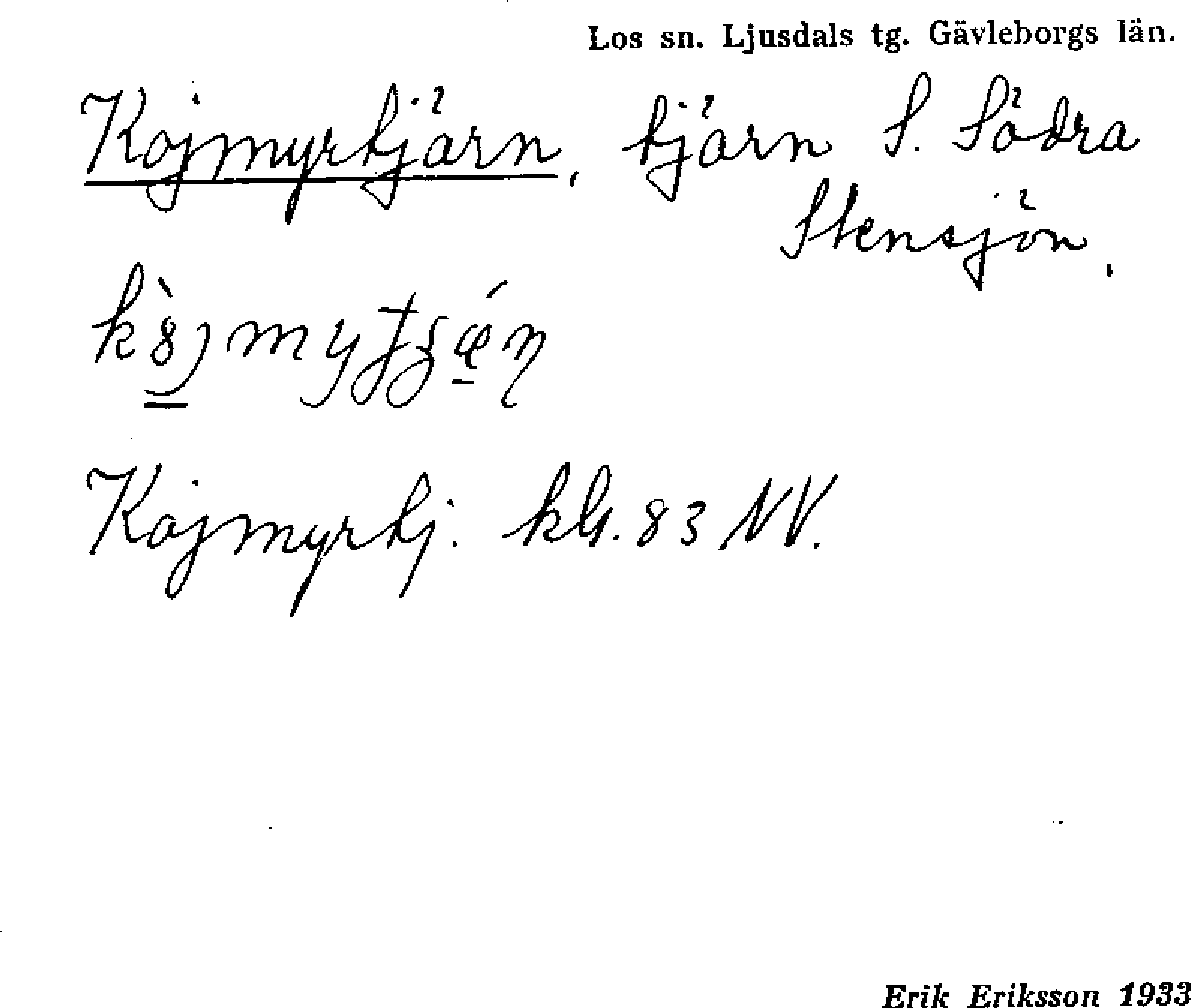 Los sn. Ljusdals tg. Gävleborgs län.
Kojmyrtjärn, tjärn S. Södra
Stensjön.
Kojmyrtj. kbl. 83 NV.
Erik Eriksson 1933